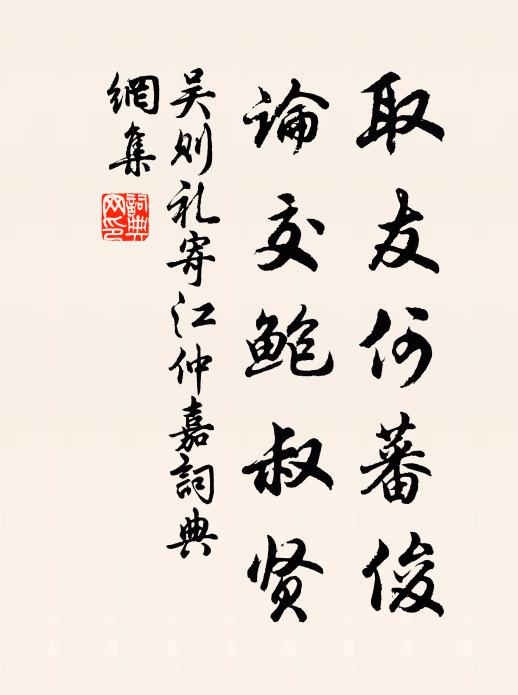 取友何蕃俊
論交鲍叔贤
吴则礼寄江仲嘉詞典
網集
詞典
网印